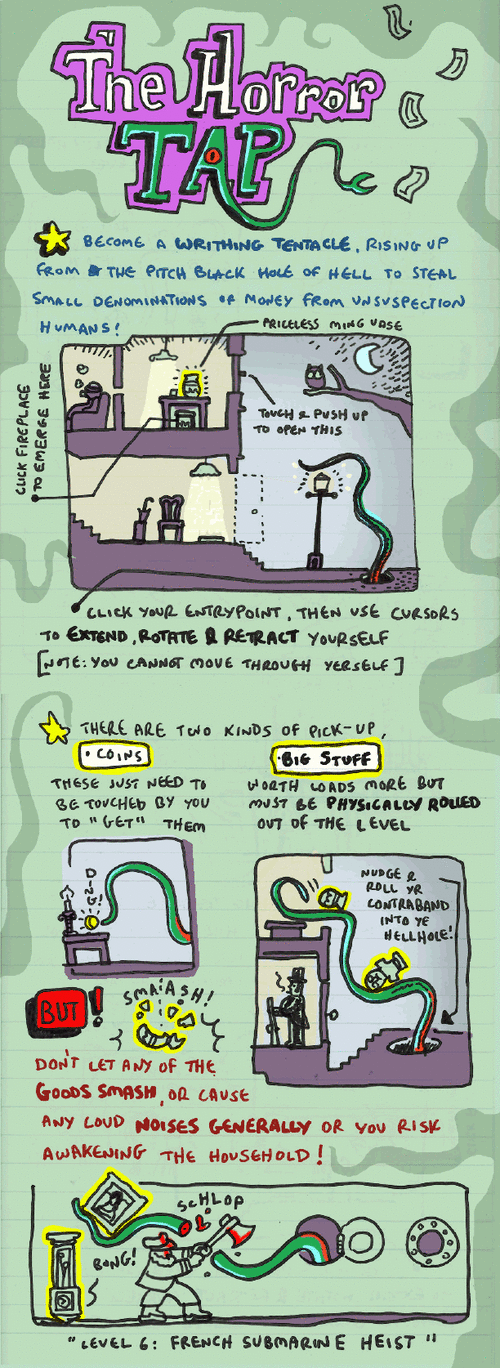 The Horror
TAP
BECOME A WRITHING TENTACLE, RISING UP
FROM THE PITCH BLACK HOLE OF HELL TO STEAL
SMALL DENOMINATIONS OF MONEY FROM UNSUSPECTION
HUMANS!
PRICELESS MING VASE
CLICK FIREPLACE
TO EMERGE HERE
TOUCH & PUSH UP
TO OPEN THIS
CLICK YOUR ENTRYPOINT, THEN USE CURSORS
TO EXTEND, ROTATE & RETRACT YOURSELF
[NOTE: YOU CANNOT MOVE THROUGH YERSELF]
THERE ARE TWO KINDS OF PICK-UP,
• COINS
THESE JUST NEED TO
BE TOUCHED BY YOU
TO "GET" THEM
• BIG STUFF
WORTH LOADS MORE BUT
MUST BE PHYSICALLY ROLLED
OUT OF THE LEVEL
DING!
NUDGE &
ROLL YR
CONTRABAND
INTO YE
HELLHOLE!
BUT!
SMAASH!
DON'T LET ANY OF THE
GOODS SMASH, OR CAUSE
ANY LOUD NOISES GENERALLY OR YOU RISK
AWAKENING THE HOUSEHOLD!
SCHLOP
BONG!
"LEVEL 6: FRENCH SUBMARINE HEIST"